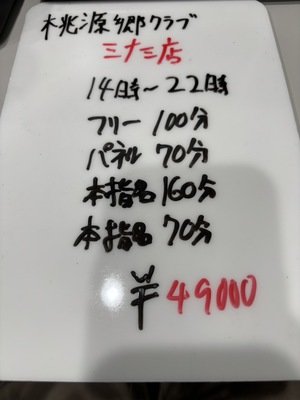 桃源郷クラブ
三十三店
14時～22時
フリー 100分
パネル 70分
本指名 160分
本指名 70分
¥49000